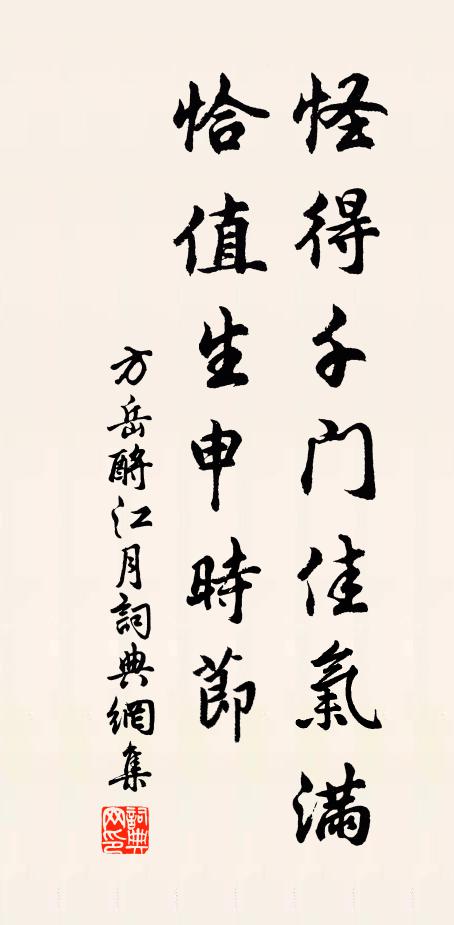 怪得千門佳氣滿
恰值生申時節
方岳酹江月詞典網集
詞典网印